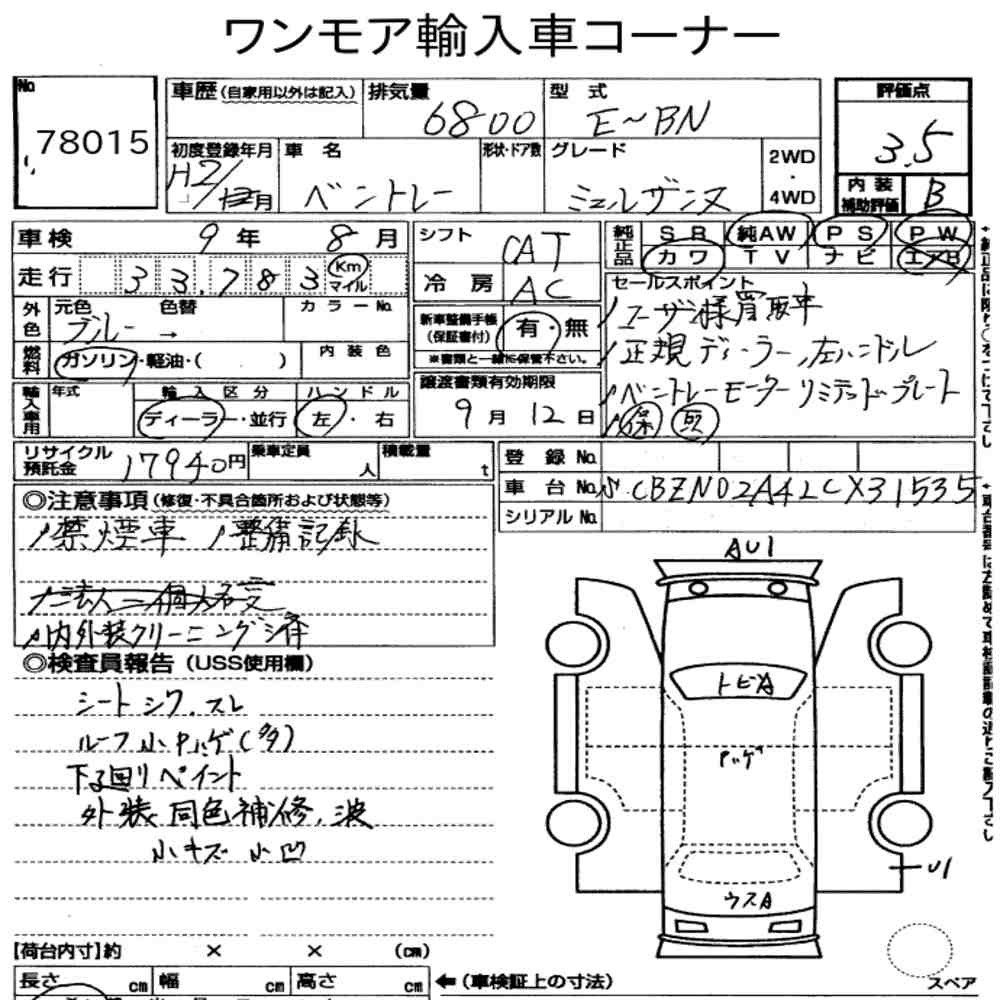 ワンモア輸入車コーナー
No 78015
車歴 (自家用以外は記入) 排気量 6800 型式 E~BN
初度登録年月 H2/12月 車名 ベントレー 形状・ドア数 グレード ミュルザンヌ 2WD・4WD
評価点 3.5
内装補助評価 B
車検 9年 8月
走行 33.783 Km マイル
外色 元色 ブルー → 色替 カラーNo.
燃料 ガソリン・軽油・( ) 内装色
輸入車用 年式 輸入区分 ディーラー・並行 ハンドル 左・右
シフト CAT
冷房 AC
新車整備手帳(保証書付) 有・無
※書類と一緒に保管下さい。
譲渡書類有効期限
9月 12日
純正品 SR 純AW PS PW
カワ TV ナビ エアB
セールスポイント
/ユーザー様買取車
/正規ディーラー,左ハンドル
/ベントレーモーターリミテッドプレート
/保 取
リサイクル預託金 17940円 乗車定員 人 積載量 t
登録No.
車台No. SCBZN02A4LCX31535
シリアルNo.
◎注意事項(修復・不具合箇所および状態等)
/禁煙車 /整備記録
/内外装クリーニング済
◎検査員報告(USS使用欄)
シートシワ,スレ
ルーフ小Pハゲ(多)
下回りペイント
外装同色補修,波
小キズ 小凹
AU1
トビA
Pハゲ
ウスA
U1
スペア
【荷台内寸】約 × × (cm)
長さ cm 幅 cm 高さ cm ←(車検証上の寸法)